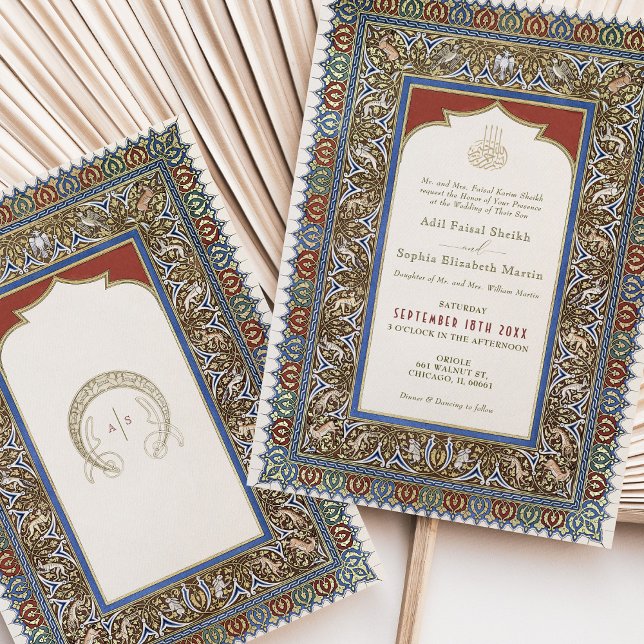 Mr. and Mrs. Faisal Karim Sheikh
request the Honor of Your Presence
at the Wedding of Their Son
Adil Faisal Sheikh
and
Sophia Elizabeth Martin
Daughter of Mr. and Mrs. William Martin
SATURDAY
SEPTEMBER 18TH 20XX
3 O'CLOCK IN THE AFTERNOON
ORIOLE
661 WALNUT ST,
CHICAGO, IL 60661
Dinner & Dancing to follow
A | S